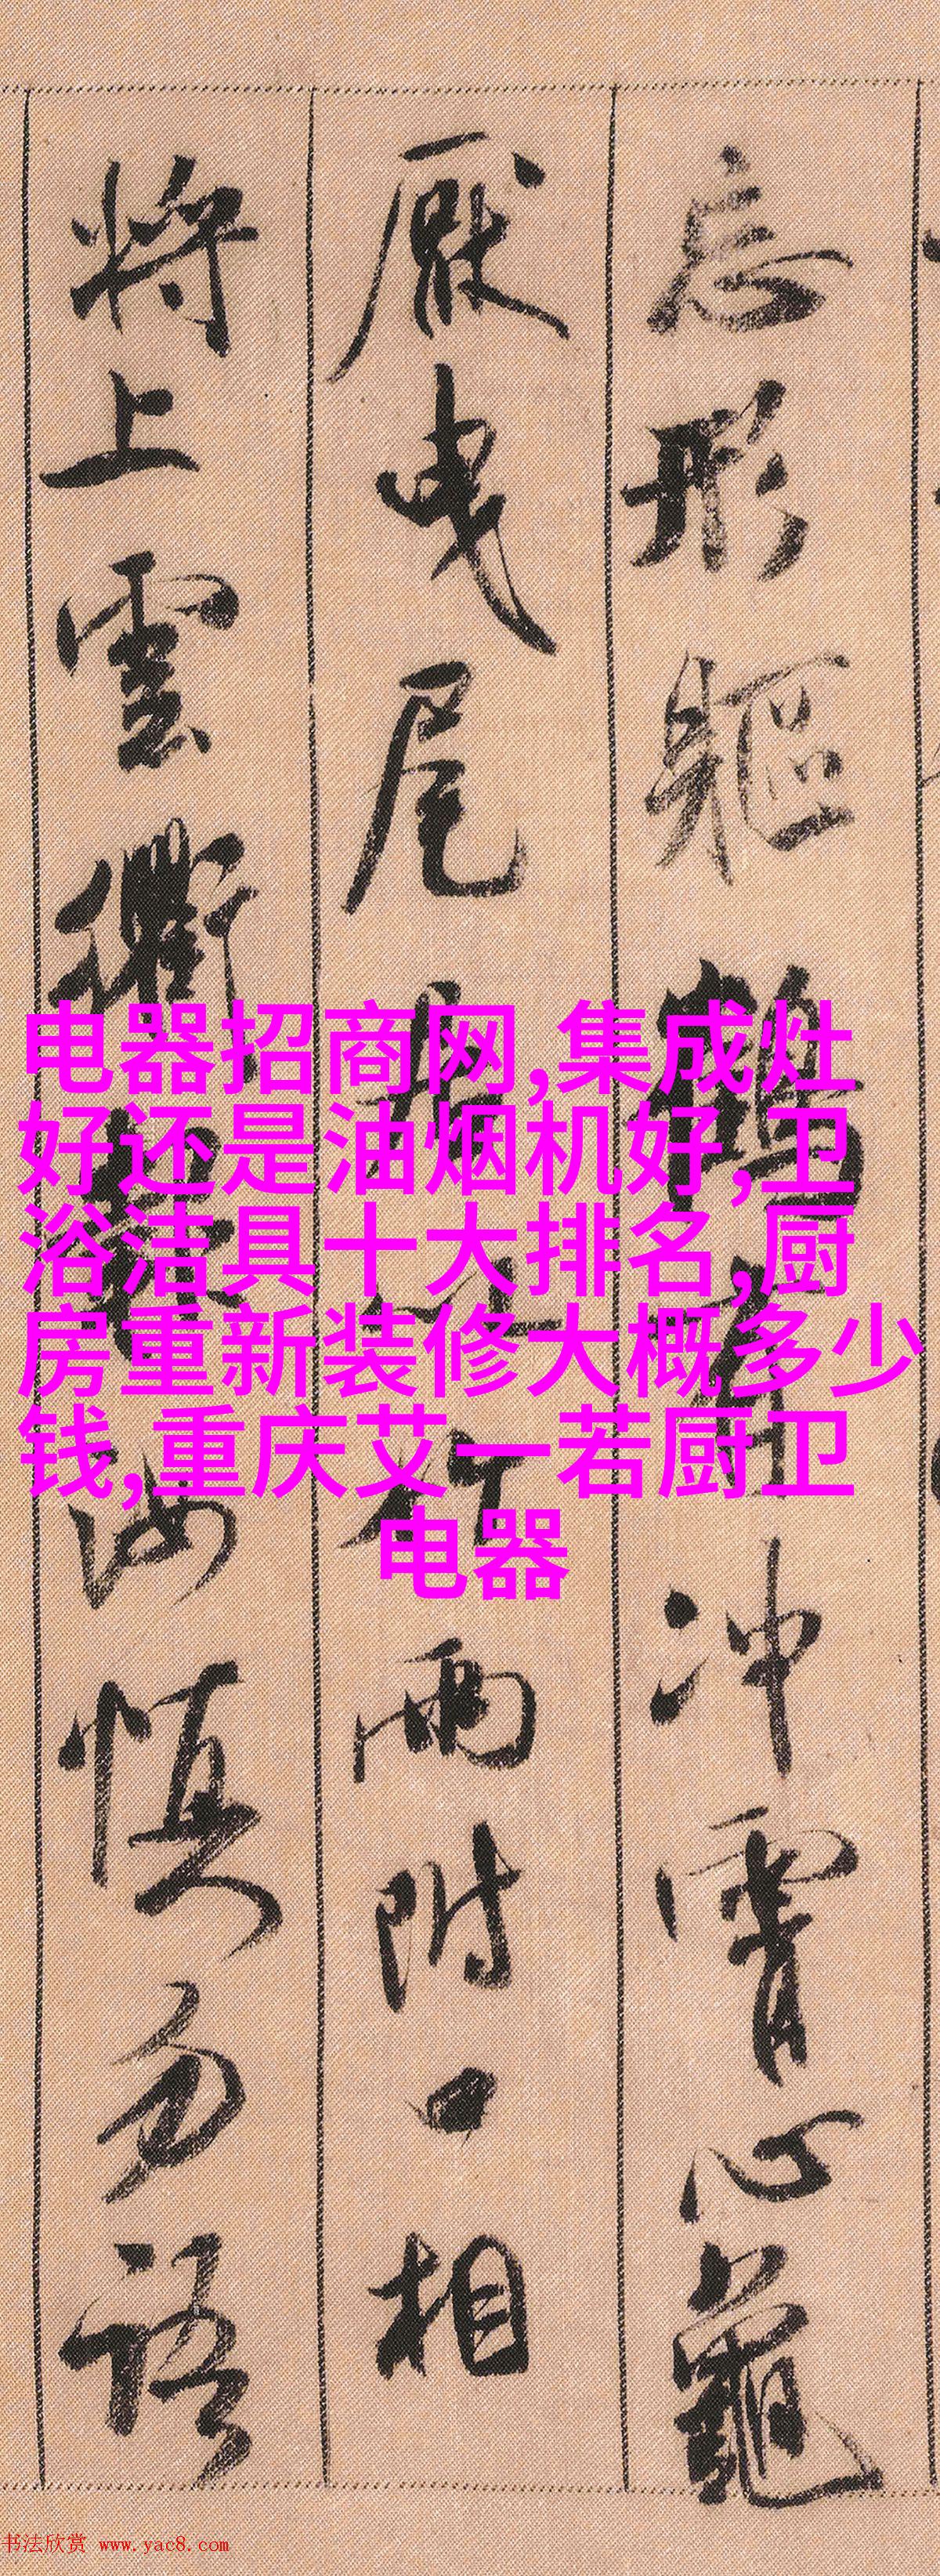 忘形軀鶴有沖霄心龜
厭曳尾居以竹兩附口相
將上雲衢報汝慎勿語
电器招商网,集成灶
好还是油烟机好,卫
浴洁具十大排名,厨
房重新装修大概多少
钱,重庆艾一若厨卫
电器
书法欣赏 www.yac8.com